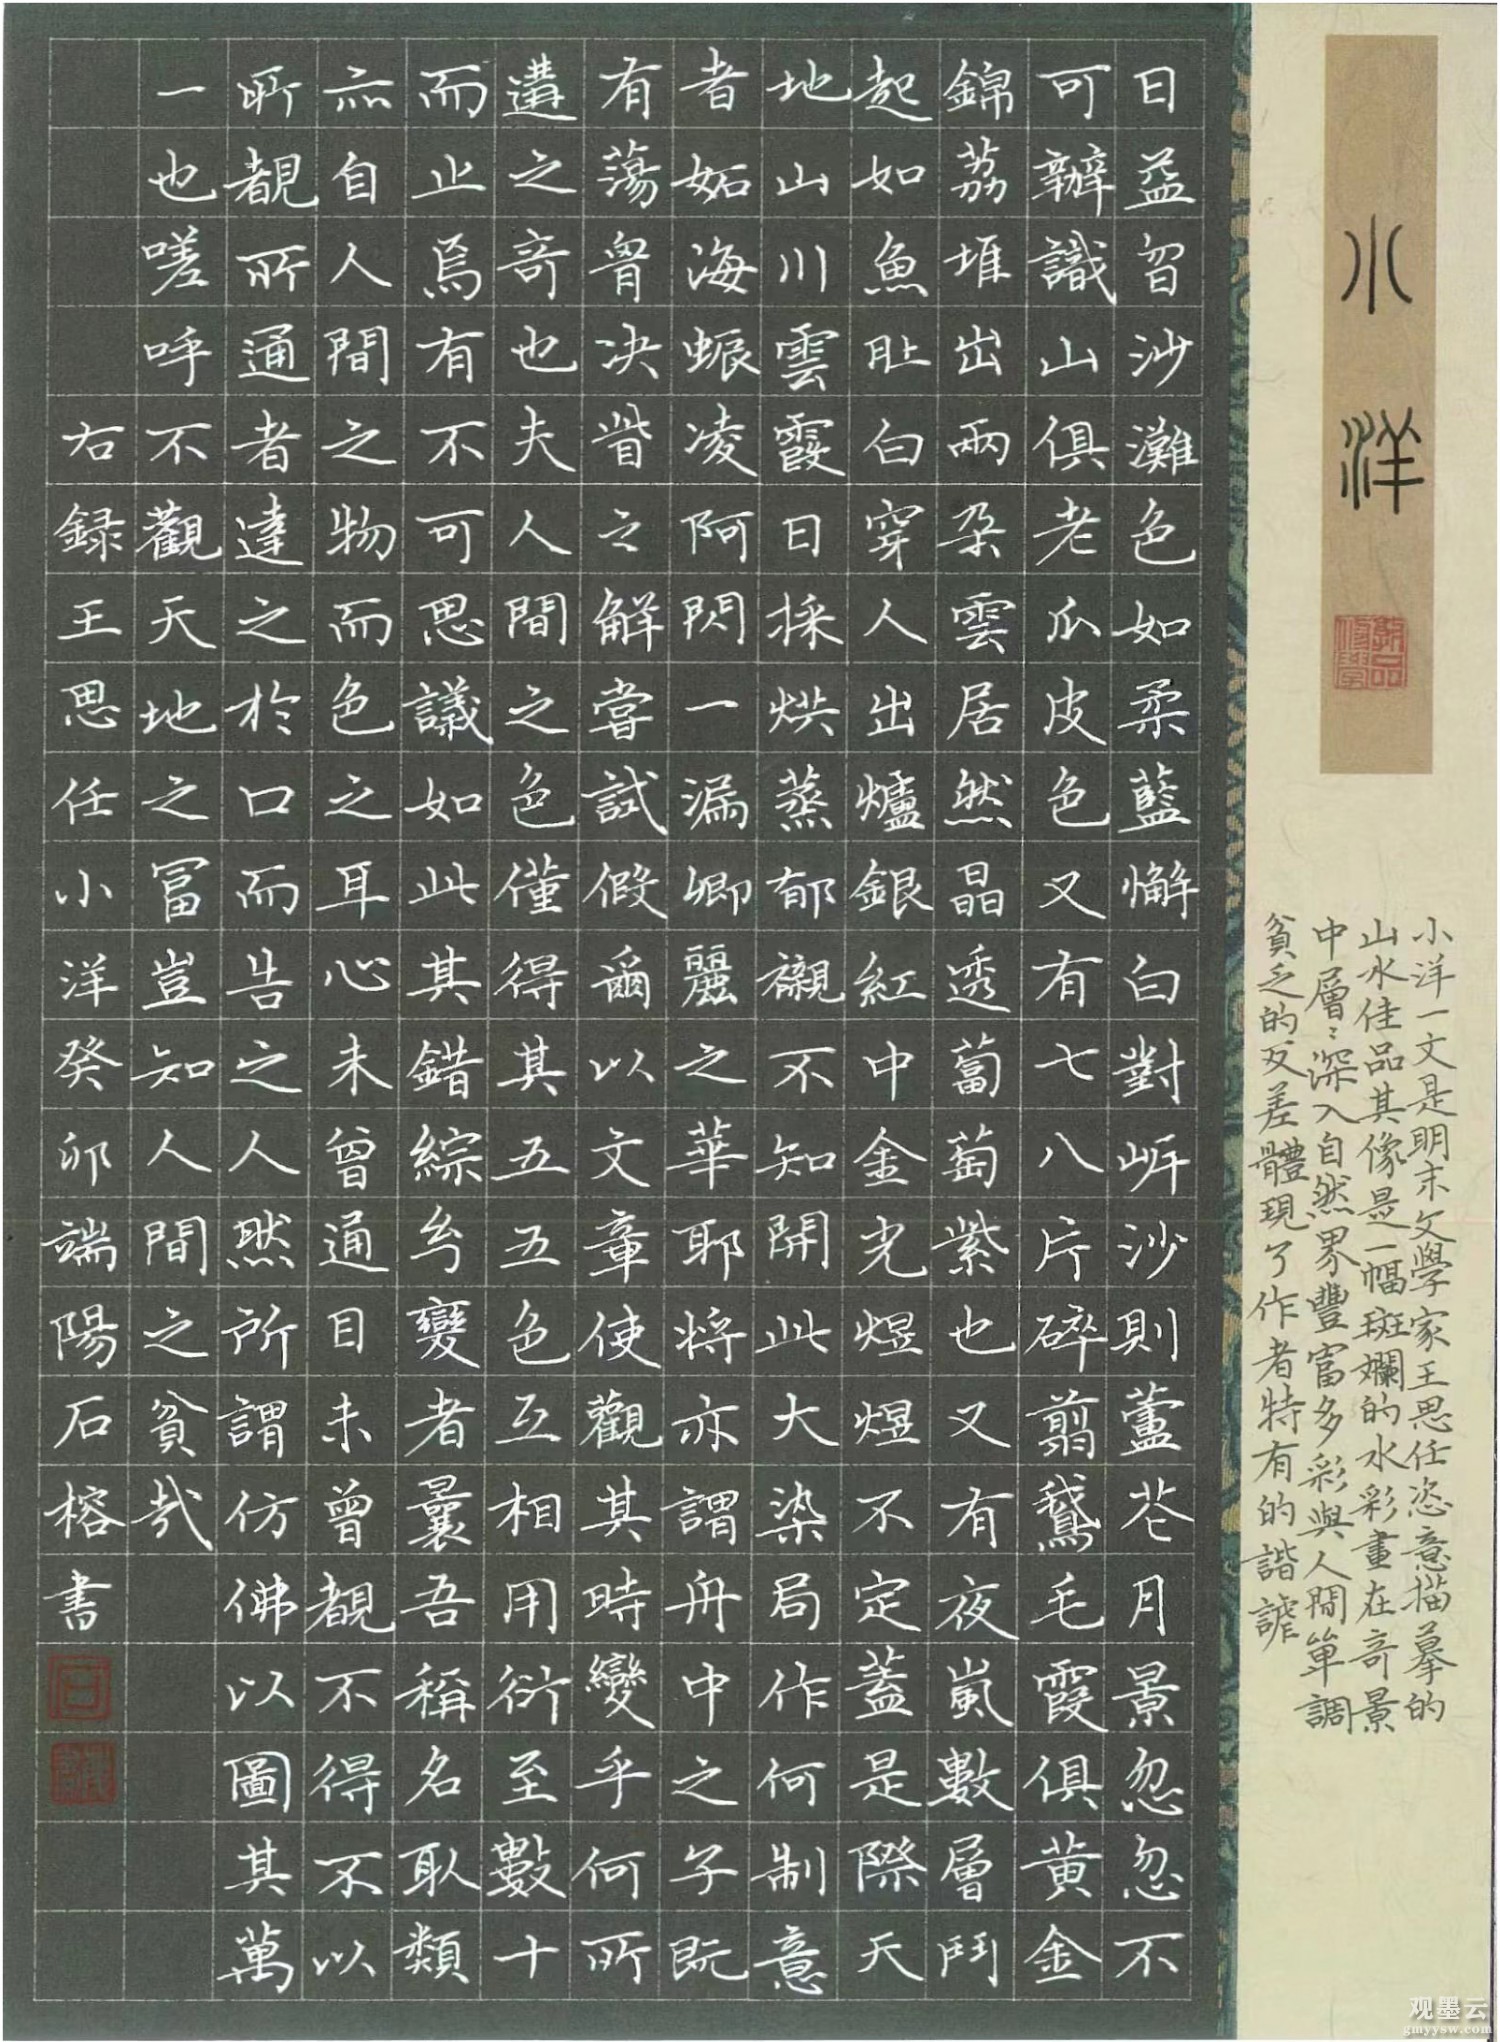 小洋
小洋一文是明末文學家王思任恣意描摹的
山水佳品其像是一幅斑斕的水彩畫在奇景
中層〻深入自然界豐富多彩與人間單調
貧乏的反差體現了作者特有的諧謔
日益曶沙灘色如柔藍懈白對岸沙則蘆花月景忽忽不
可辨識山俱老瓜皮色又有七八片碎翦鵝毛霞俱黄金
錦荔堆出兩朵雲居然晶透葡萄紫也又有夜嵐數層鬥
起如魚肚白穿人出爐銀紅中金光煜煜不定蓋是際天
地山川雲霞日採烘蒸郁襯不知開此大染局作何制意
者妬海蜃凌阿閃一漏卿麗之華耶將亦謂舟中之子既
有蕩胷決眥之解嘗試假爾以文章使觀其時變乎何所
遘之奇也夫人間之色僅得其五五色互相用衍至數十
而止焉有不可思議如此其錯綜兮變者曩吾稱名取類
亦自人間之物而色之耳心未曾通目未曾覩不得不以
所覩所通者達之於口而告之人然所謂仿佛以圖其萬
一也嗟呼不觀天地之富豈知人間之貧哉
右録王思任小洋癸卯端陽石榕書
观墨云
gmyysw.com